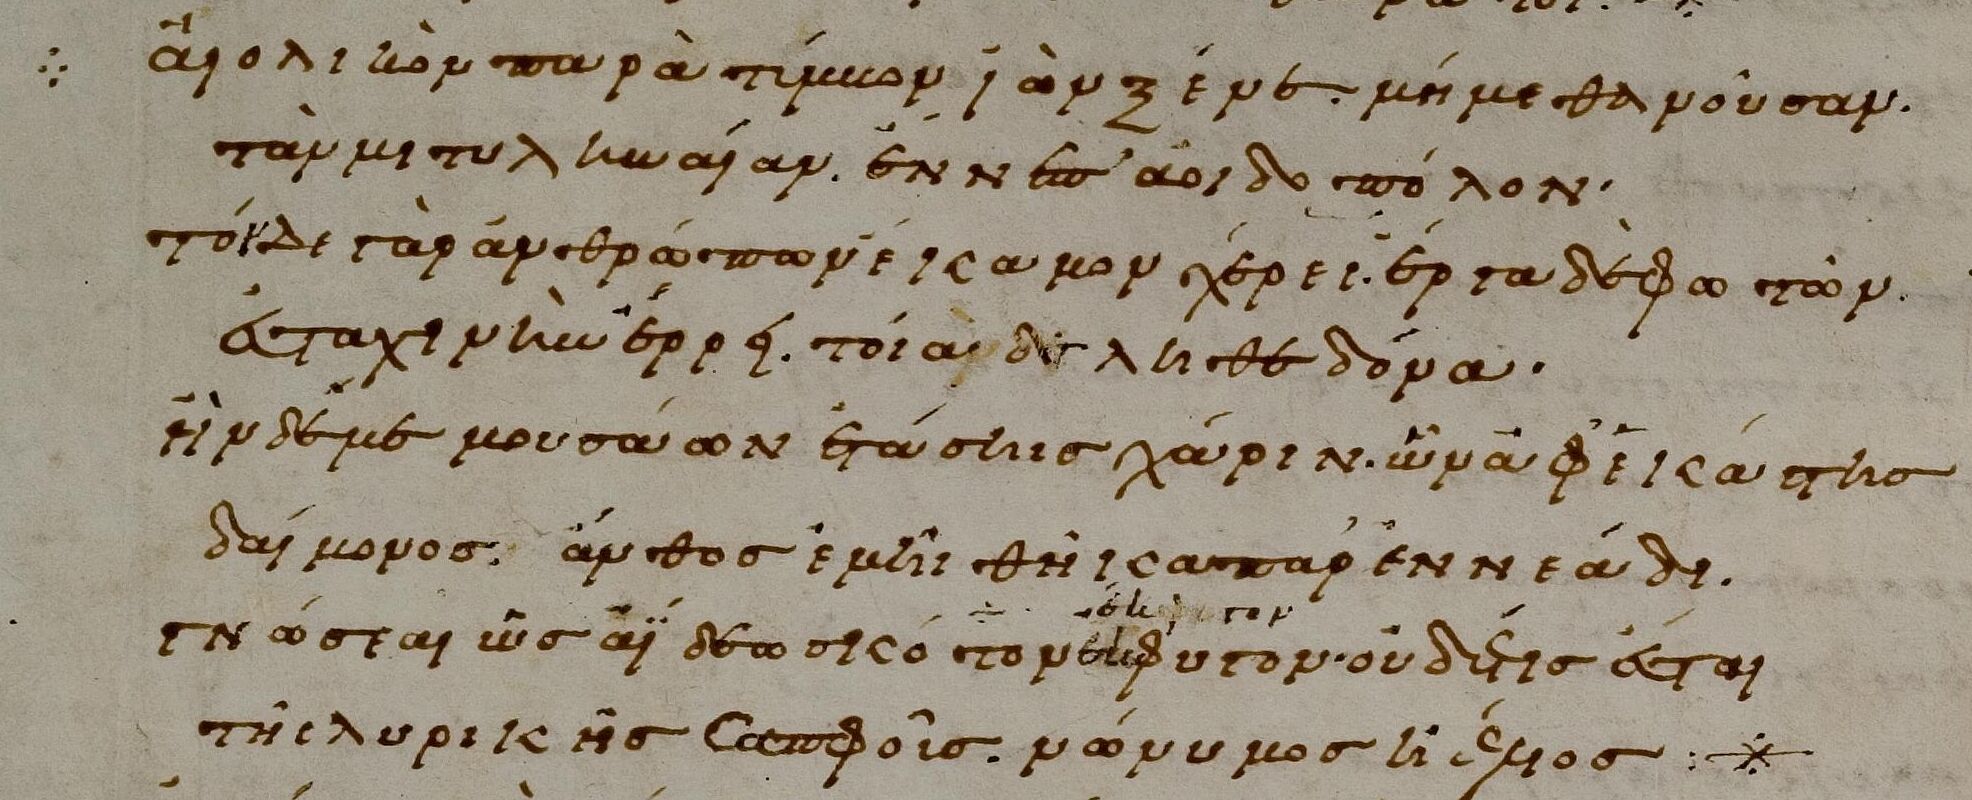 ἀιολικὸν παρὰ τύμβον ἰὼν ξένε. μή με θανοῦσαν.
τὰν μιτυληναίαν. ἔννεπ' ἀοιδοπόλον·
τόνδε γὰρ ἀνθρώπων ἔκαμον χέρες. ἔργα δὲ φωτῶν.
ἐς ταχινὴν ἔρρει. τοιάδε ληθεδόνα·
ἢν δέ με μουσάων ἐτάσηις χάριν. ὧν ἀφ' ἑκάστης
δαίμονος. ἄνθος ἐμῆι θῆκα παρ' ἐννεάδι.
γνώσεαι ὡς ἀΐδεω σκότον ἔκφυγον· οὐδέ τις ἔσται
τῆς λυρικῆς Σαπφοῦς. νώνυμος ἠέλιος :